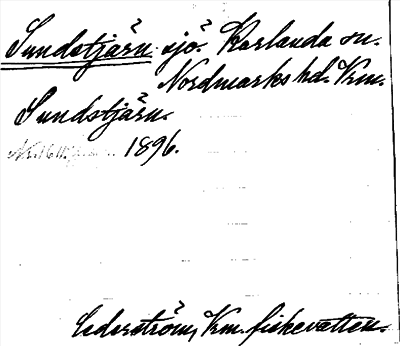 Sundstjärn sjö. Karlanda sn.
Nordmarks hd. Vrm.
Sundstjärn.
1896.
Cederström, Vrm. fiskevatten.